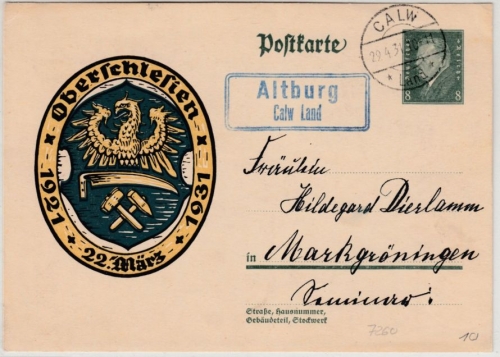 Postkarte
CALW
29.4.31
Land
8 8
Altburg
Calw Land
Oberschlesien
1921 1931
22. März
Fräulein
Hildegard Dierlamm
in Markgröningen
Seminar.
Straße, Hausnummer,
Gebäudeteil, Stockwerk
7260
10